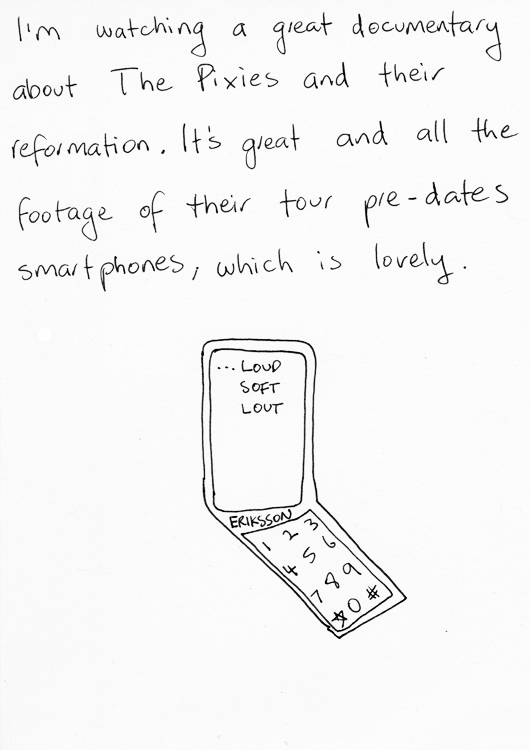 I'm watching a great documentary
about The Pixies and their
reformation. It's great and all the
footage of their tour pre-dates
smartphones, which is lovely.
... LOUD
SOFT
LOUT
ERIKSSON
1 2 3
4 5 6
7 8 9
* 0 #